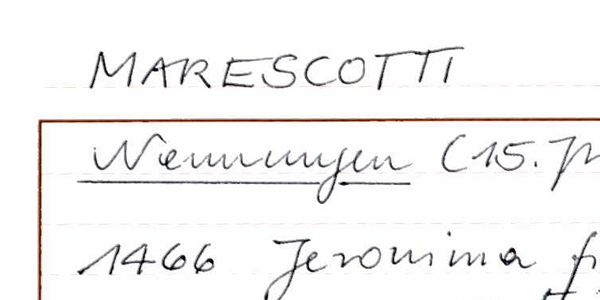 MARESCOTTI
Nennungen (15.
1466 Jeronima